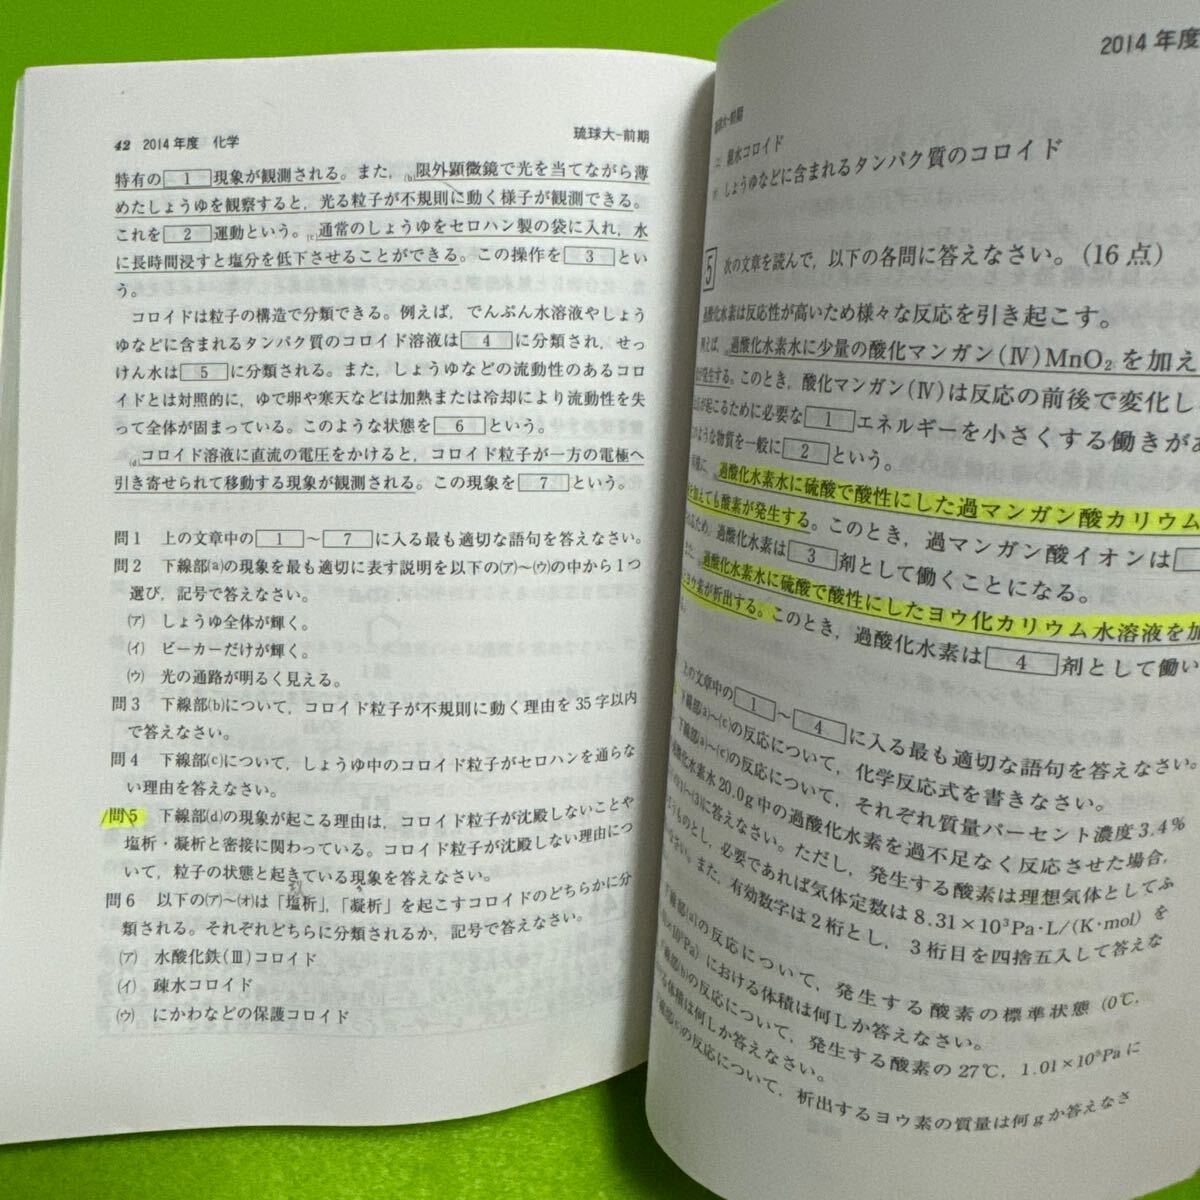 42 2014年度 化学 琉球大-前期
特有の 1 現象が観測される。また,(b)限外顕微鏡で光を当てながら薄
めたしょうゆを観察すると,光る粒子が不規則に動く様子が観測できる。
これを 2 運動という。(c)通常のしょうゆをセロハン製の袋に入れ,水
に長時間浸すと塩分を低下させることができる。この操作を 3 とい
う。
コロイドは粒子の構造で分類できる。例えば,でんぷん水溶液やしょう
ゆなどに含まれるタンパク質のコロイド溶液は 4 に分類され,せっ
けん水は 5 に分類される。また,しょうゆなどの流動性のあるコロ
イドとは対照的に,ゆで卵や寒天などは加熱または冷却により流動性を失
って全体が固まっている。このような状態を 6 という。
(d)コロイド溶液に直流の電圧をかけると,コロイド粒子が一方の電極へ
引き寄せられて移動する現象が観測される。この現象を 7 という。
問1 上の文章中の 1 ~ 7 に入る最も適切な語句を答えなさい。
問2 下線部(a)の現象を最も適切に表す説明を以下の(ア)~(ウ)の中から1つ
選び,記号で答えなさい。
(ア) しょうゆ全体が輝く。
(イ) ビーカーだけが輝く。
(ウ) 光の通路が明るく見える。
問3 下線部(b)について,コロイド粒子が不規則に動く理由を35字以内
で答えなさい。
問4 下線部(c)について,しょうゆ中のコロイド粒子がセロハンを通らな
い理由を答えなさい。
問5 下線部(d)の現象が起こる理由は,コロイド粒子が沈殿しないことや
塩析・凝析と密接に関わっている。コロイド粒子が沈殿しない理由につ
いて,粒子の状態と起きている現象を答えなさい。
問6 以下の(ア)~(オ)は「塩析」,「凝析」を起こすコロイドのどちらかに分
類される。それぞれどちらに分類されるか,記号で答えなさい。
(ア) 水酸化鉄(Ⅲ)コロイド
(イ) 疎水コロイド
(ウ) にかわなどの保護コロイド
2014年度
琉球大-前期
親水コロイド
しょうゆなどに含まれるタンパク質のコロイド
5 次の文章を読んで,以下の各問に答えなさい。(16点)
過酸化水素は反応性が高いため様々な反応を引き起こす。
例えば,過酸化水素水に少量の酸化マンガン(Ⅳ)MnO₂を加え
が発生する。このとき,酸化マンガン(Ⅳ)は反応の前後で変化し
が起こるために必要な 1 エネルギーを小さくする働きがあ
のような物質を一般に 2 という。
過酸化水素水に硫酸で酸性にした過マンガン酸カリウム
を加えても酸素が発生する。このとき,過マンガン酸イオンは
るため,過酸化水素は 3 剤として働くことになる。
また,過酸化水素水に硫酸で酸性にしたヨウ化カリウム水溶液を加
ヨウ素が析出する。このとき,過酸化水素は 4 剤として働い
上の文章中の 1 ~ 4 に入る最も適切な語句を答えなさい。
下線部(a)~(c)の反応について,化学反応式を書きなさい。
下線部(a)~(c)の反応について,それぞれ質量パーセント濃度3.4%
過酸化水素水20.0g中の過酸化水素を過不足なく反応させた場合,
(1)~(3)に答えなさい。ただし,発生する酸素は理想気体としてふ
るまうものとし,必要であれば気体定数は8.31×10³Pa・L/(K・mol)を
さい。また,有効数字は2桁とし,3桁目を四捨五入して答えな
下線部(a)の反応について,発生する酸素の標準状態(0℃,
×10⁵Pa)における体積は何Lか答えなさい。
下線部(b)の反応について,発生する酸素の27℃,1.01×10⁵Paに
る体積は何Lか答えなさい。
下線部(c)の反応について,析出するヨウ素の質量は何gか答えなさ